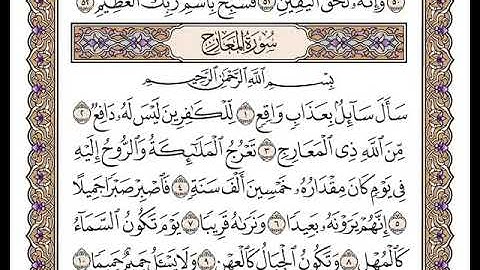 ٥٠ وَإِنَّهُۥ لَحَقُّ ٱلْيَقِينِ ٥١ فَسَبِّحْ بِٱسْمِ رَبِّكَ ٱلْعَظِيمِ ٥٢
سُورَةُ المَعَارِجِ
بِسْمِ ٱللَّهِ ٱلرَّحْمَٰنِ ٱلرَّحِيمِ
سَأَلَ سَآئِلٌۢ بِعَذَابٍ وَاقِعٍ ١ لِّلْكَٰفِرِينَ لَيْسَ لَهُۥ دَافِعٌ ٢
مِّنَ ٱللَّهِ ذِى ٱلْمَعَارِجِ ٣ تَعْرُجُ ٱلْمَلَٰٓئِكَةُ وَٱلرُّوحُ إِلَيْهِ
فِى يَوْمٍ كَانَ مِقْدَارُهُۥ خَمْسِينَ أَلْفَ سَنَةٍ ٤ فَٱصْبِرْ صَبْرًا جَمِيلًا
٥ إِنَّهُمْ يَرَوْنَهُۥ بَعِيدًا ٦ وَنَرَىٰهُ قَرِيبًا ٧ يَوْمَ تَكُونُ ٱلسَّمَآءُ
كَٱلْمُهْلِ ٨ وَتَكُونُ ٱلْجِبَالُ كَٱلْعِهْنِ ٩ وَلَا يَسْـَٔلُ حَمِيمٌ حَمِيمًا ١٠